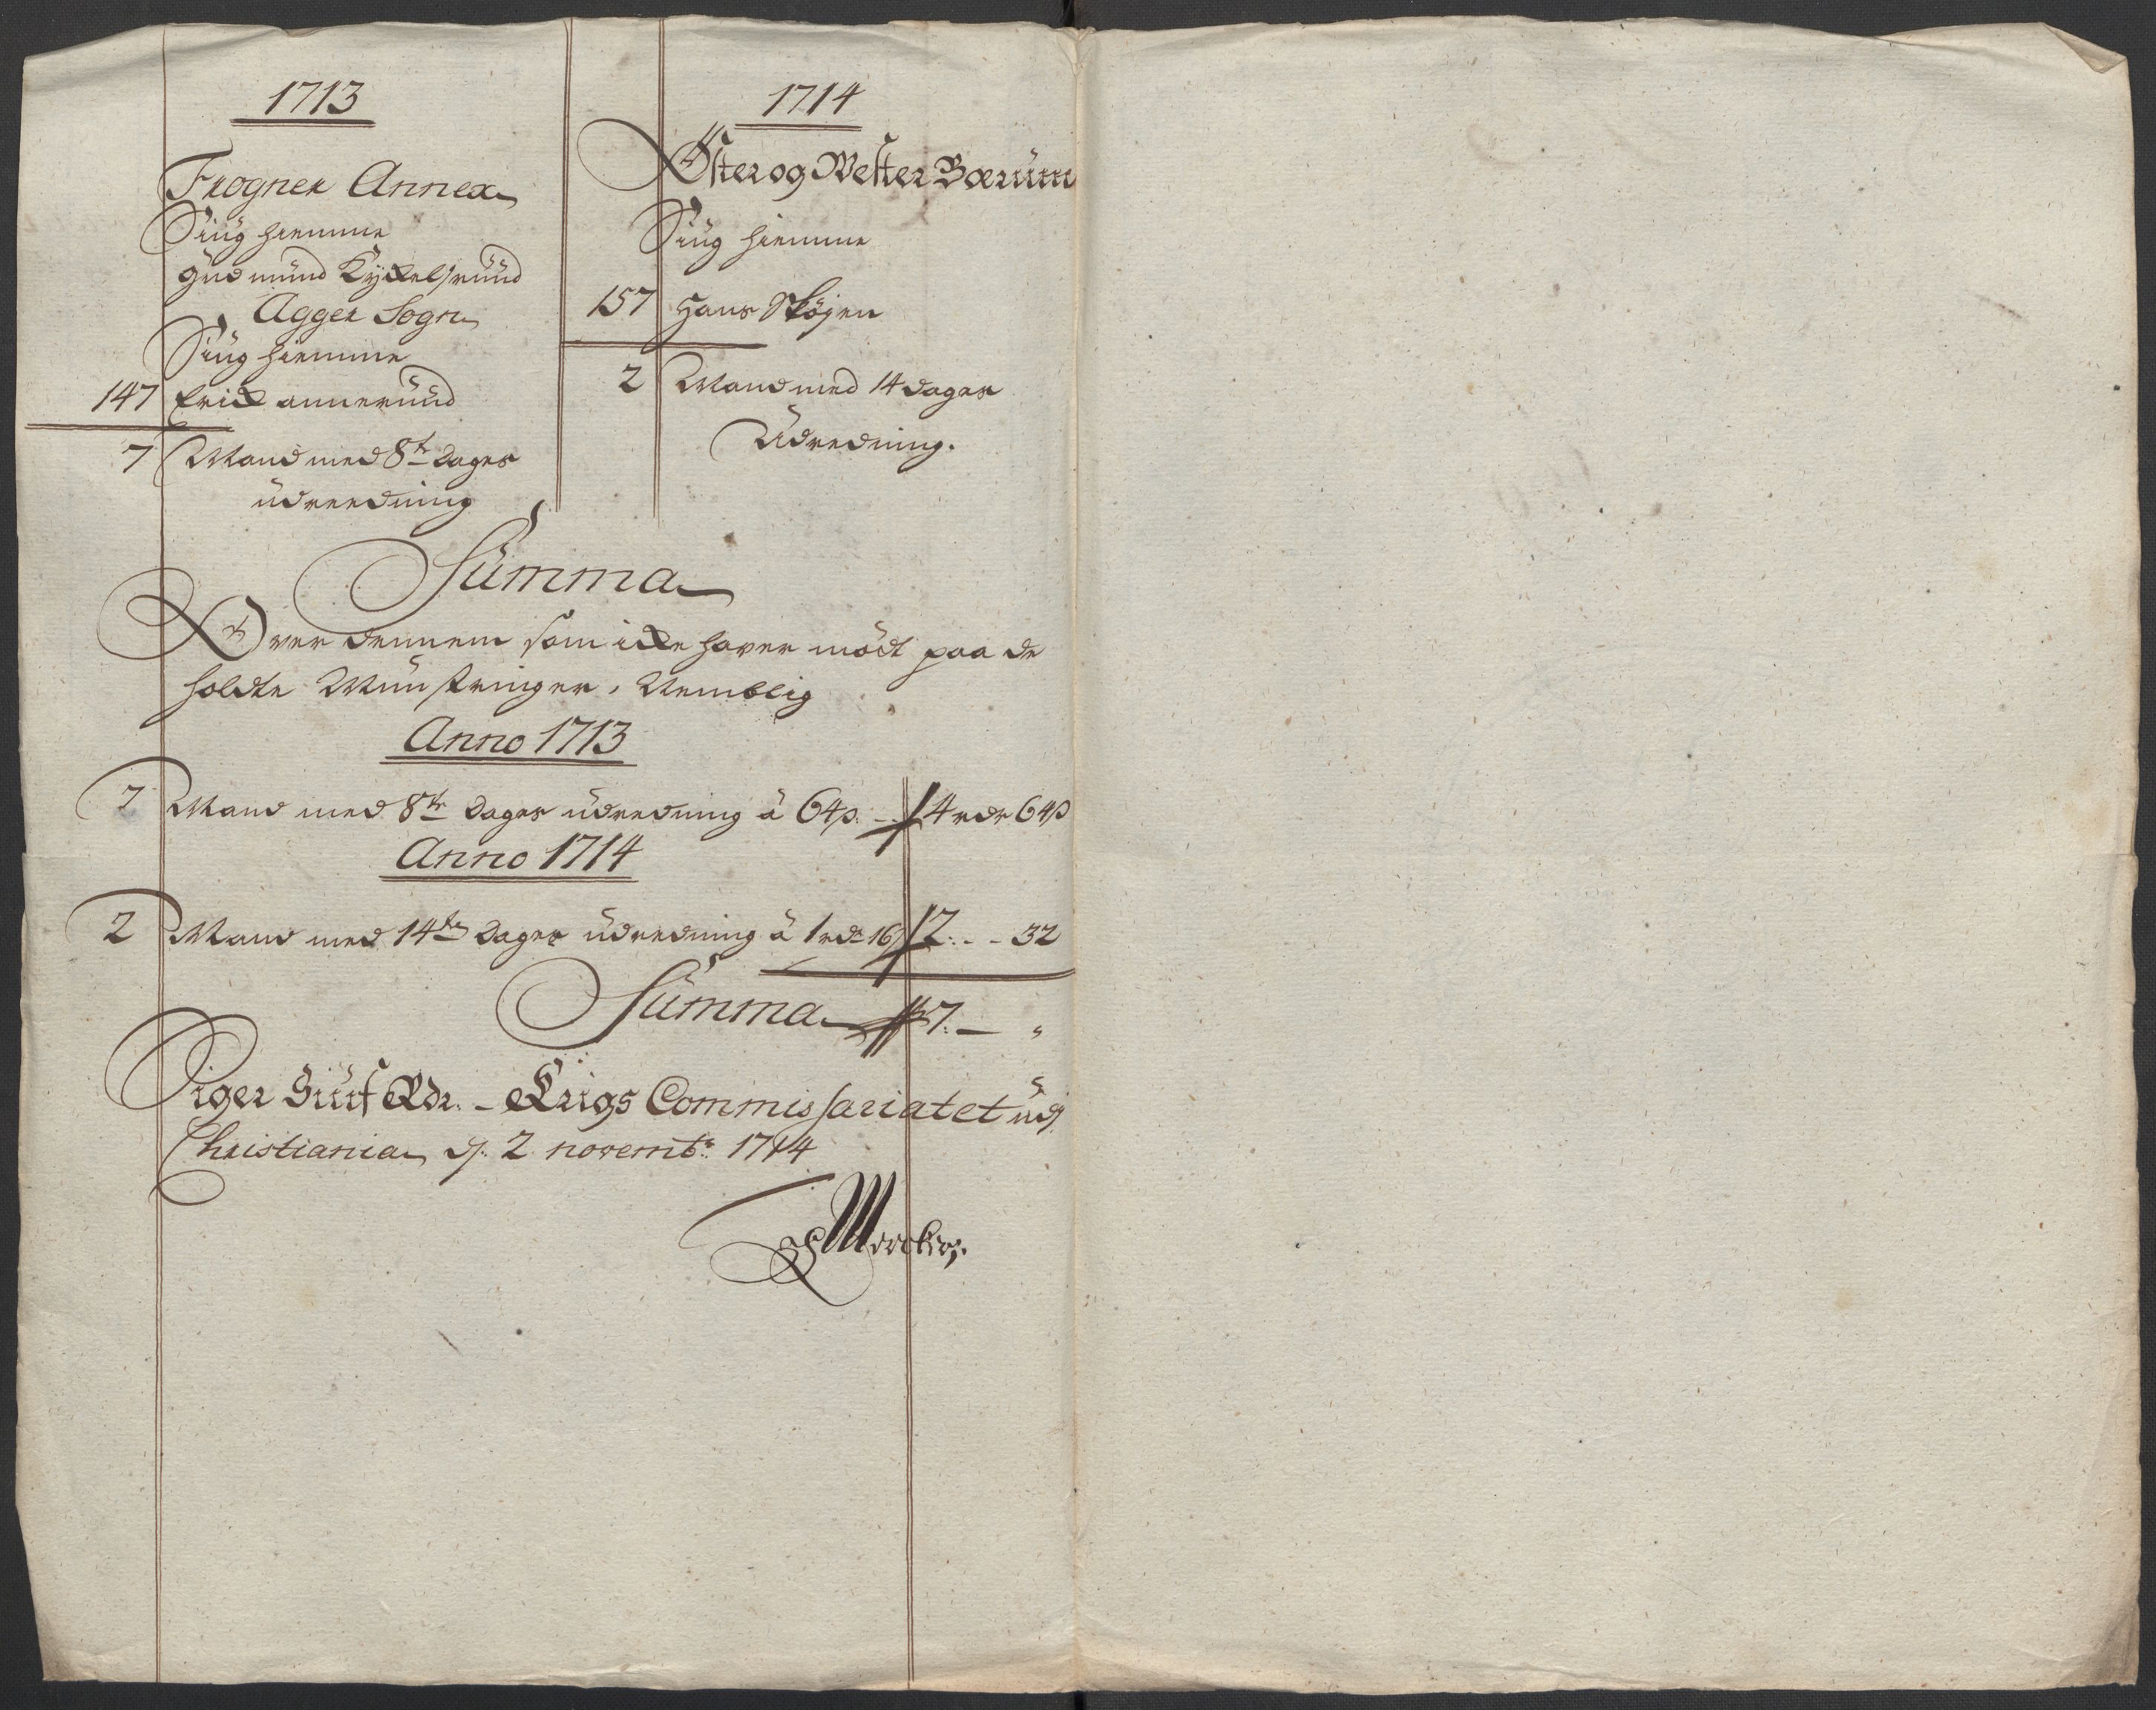 1713
Frogner Annex
Siug hiemme
Gudmund Kykelsruud
Agger Sogn
Siug hiemme
147 Erick anneruud
7 Mand med 8te Dages
üdreedning
1714
Øster og Wester Bærüm
Siug hiemme
157 Hans Skøyen
2 Mand med 14 dages
Üdredning.
Summa
Over dennem som icke haver mödt paa de
holdte Mönstringer, Nemblig
Anno 1713
7 Mand med 8te Dages üdredning à 64β. -. 4 rdr 64β
Anno 1714
2 Mand med 14te Dages üdredning à 1 rdr 16β 2. - - 32
Summa 7. — "
Siger Siuf Rdr. - Krigs Commissariatet udj
Christiania dj. 2 novembr: 1714